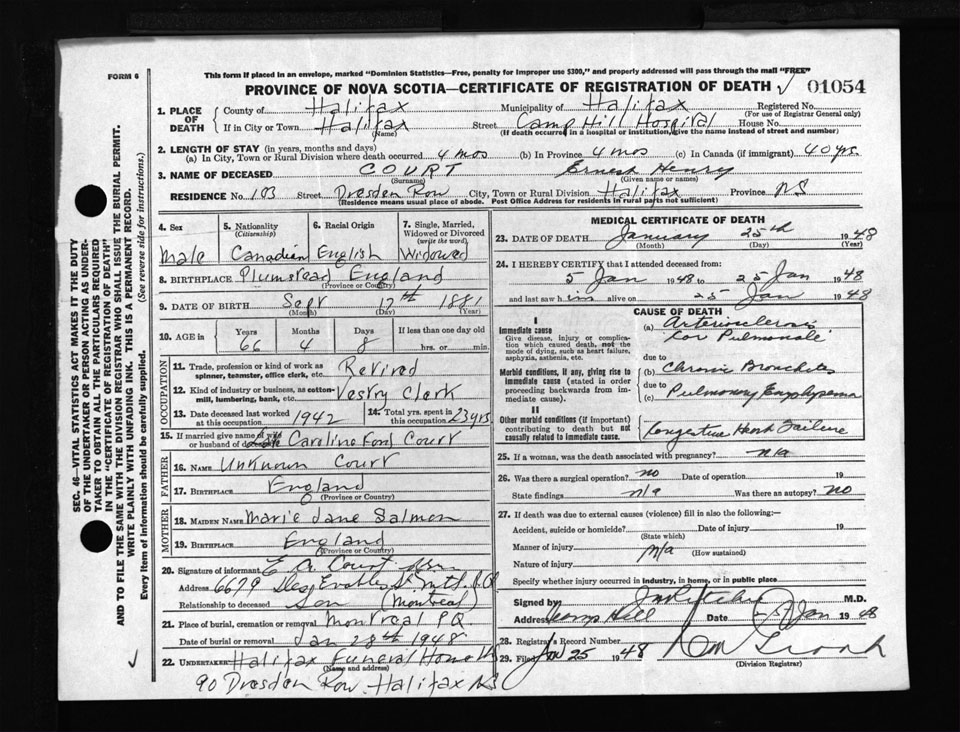 This form if placed in an envelope, marked "Dominion Statistics—Free, penalty for improper use $300," and properly addressed will pass through the mail "FREE"
FORM 6
PROVINCE OF NOVA SCOTIA—CERTIFICATE OF REGISTRATION OF DEATH 01054
1. PLACE OF DEATH
County of Halifax Municipality of Halifax Registered No.
(For use of Registrar General only)
If in City or Town Halifax Street Camp Hill Hospital House No.
(Name) (If death occurred in a hospital or institution, give the name instead of street and number)
2. LENGTH OF STAY (in years, months and days)
(a) In City, Town or Rural Division where death occurred 4 mos (b) In Province 4 mos (c) In Canada (if immigrant) 40 yrs.
3. NAME OF DECEASED COURT Ernest Henry
(Surname) (Given name or names)
RESIDENCE No. 103 Street Dresden Row City, Town or Rural Division Halifax Province NS
(Residence means usual place of abode. Post Office Address for residents in rural parts not sufficient)
4. Sex 5. Nationality (Citizenship) 6. Racial Origin 7. Single, Married, Widowed or Divorced (write the word)
Male Canadian English Widowed
8. BIRTHPLACE Plumstead England
(Province or Country)
9. DATE OF BIRTH Sept 17th 1881
(Month) (Day) (Year)
10. AGE in Years Months Days If less than one day old
66 4 8 hrs. or min.
OCCUPATION
11. Trade, profession or kind of work as spinner, teamster, office clerk, etc. Retired
12. Kind of industry or business, as cotton-mill, lumbering, bank, etc. Vestry Clerk
13. Date deceased last worked at this occupation 1942 14. Total yrs. spent in this occupation 23 yrs
15. If married give name of wife or husband of deceased Caroline Court
FATHER
16. NAME Unknown Court
17. BIRTHPLACE England
(Province or Country)
MOTHER
18. MAIDEN NAME Marie Jane Salmon
19. BIRTHPLACE England
(Province or Country)
20. Signature of informant E A Court
Address 6679 St Mtl. P.Q.
Relationship to deceased Son (Montreal)
21. Place of burial, cremation or removal Montreal P.Q.
Date of burial or removal Jan 28th 1948
22. UNDERTAKER Halifax Funeral Home
(Name and address)
90 Dresden Row. Halifax NS
MEDICAL CERTIFICATE OF DEATH
23. DATE OF DEATH January 25th 1948
(Month) (Day) (Year)
24. I HEREBY CERTIFY that I attended deceased from:
5 Jan 1948 to 25 Jan 1948
and last saw him alive on 25 Jan 1948
CAUSE OF DEATH
I
Immediate cause
Give disease, injury or complication which caused death, not the mode of dying, such as heart failure, asphyxia, asthenia, etc.
(a) Arteriosclerosis
Cor Pulmonale
due to
Morbid conditions, if any, giving rise to immediate cause (stated in order proceeding backwards from immediate cause).
(b) Chronic Bronchitis
due to
(c) Pulmonary Emphysema
II
Other morbid conditions (if important) contributing to death but not causally related to immediate cause.
Congestive Heart Failure
25. If a woman, was the death associated with pregnancy? n/a
26. Was there a surgical operation? no Date of operation 19
State findings n/a Was there an autopsy? no
27. If death was due to external causes (violence) fill in also the following:—
Accident, suicide or homicide? Date of injury 19
(State which)
Manner of injury n/a
(How sustained)
Nature of injury
Specify whether injury occurred in industry, in home, or in public place
Signed by J Ritchie M.D.
Address Camp Hill Date Jan 1948
28. Registrar's Record Number
29. Filed Jan 25 1948
(Division Registrar)
SEC. 46—VITAL STATISTICS ACT MAKES IT THE DUTY
OF THE UNDERTAKER OR PERSON ACTING AS UNDER-
TAKER TO OBTAIN ALL THE PARTICULARS REQUIRED
IN THE "CERTIFICATE OF REGISTRATION OF DEATH"
AND TO FILE THE SAME WITH THE DIVISION REGISTRAR WHO SHALL ISSUE THE BURIAL PERMIT.
WRITE PLAINLY WITH UNFADING INK. THIS IS A PERMANENT RECORD.
Every item of information should be carefully supplied. (See reverse side for instructions.)